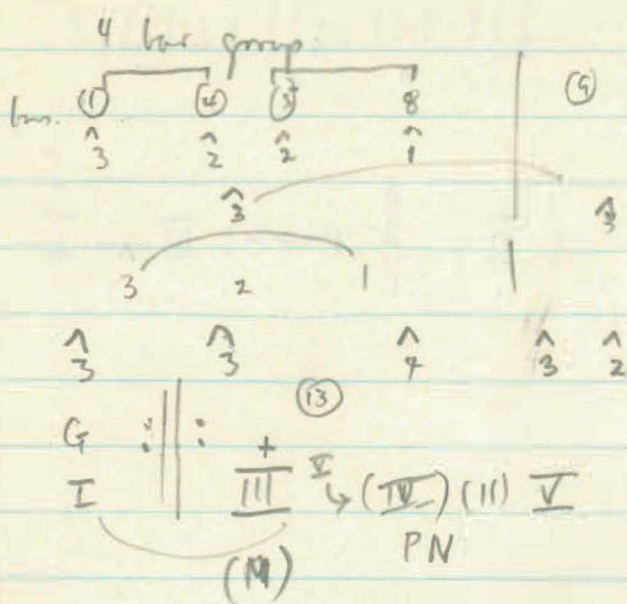 4 bar group
bars. ① ④ ⑤ 8 ⑨
^3 ^2 ^2 ^1
^3 ^3
3 2 1
^3 ^3 ^4 ^3 ^2
⑬
G :||: +
I III V (IV) (II) V
(M) PN